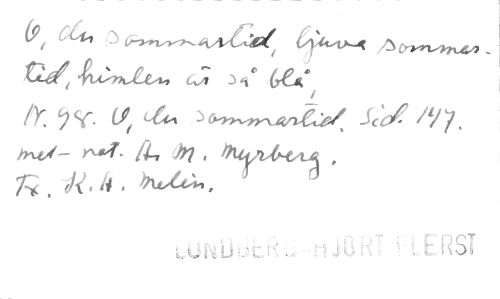 O, du sommartid, ljuva sommar-
tid, himlen är så blå,
N. 98. O, du sommartid. Sid. 147.
met-not. A. M. Myrberg.
Tx. K. A. Melin.
LUNDBERG-HJORT FLERST